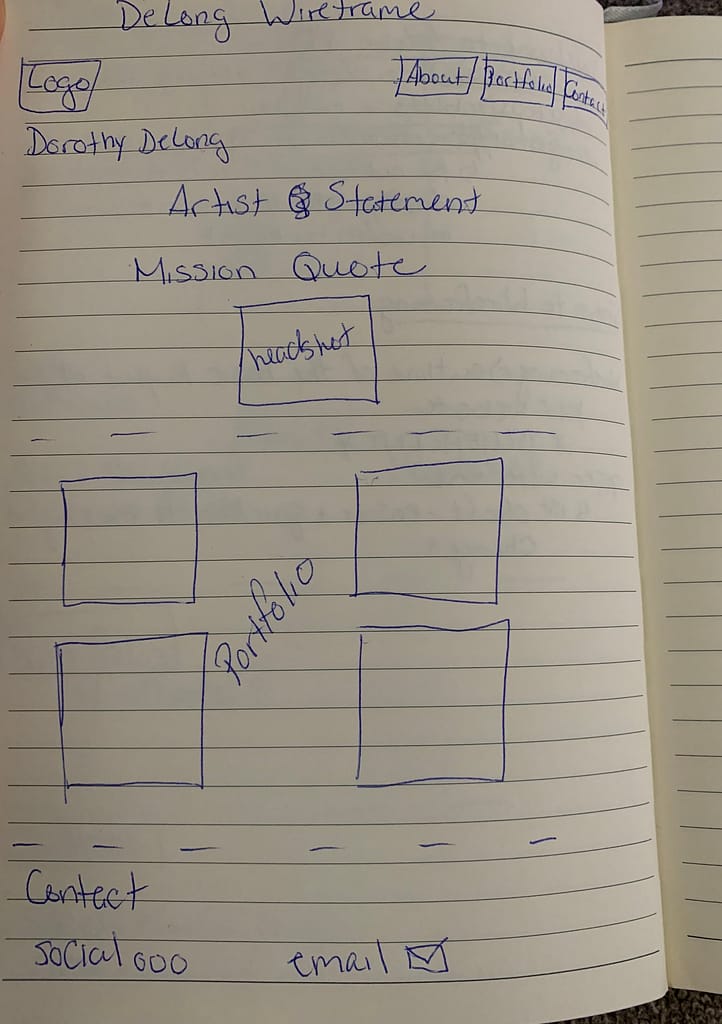 DeLong Wireframe
Logo About Portfolio Contact
Dorothy DeLong
Artist Statement
Mission Quote
headshot
Portfolio
Contact
social ooo email